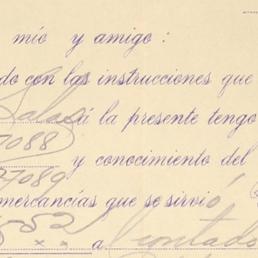 mío y amigo:
do con las instrucciones que
Salas á la presente tengo
7088
y conocimiento del
7089
mercancías que se sirvió
5-52
a Contado